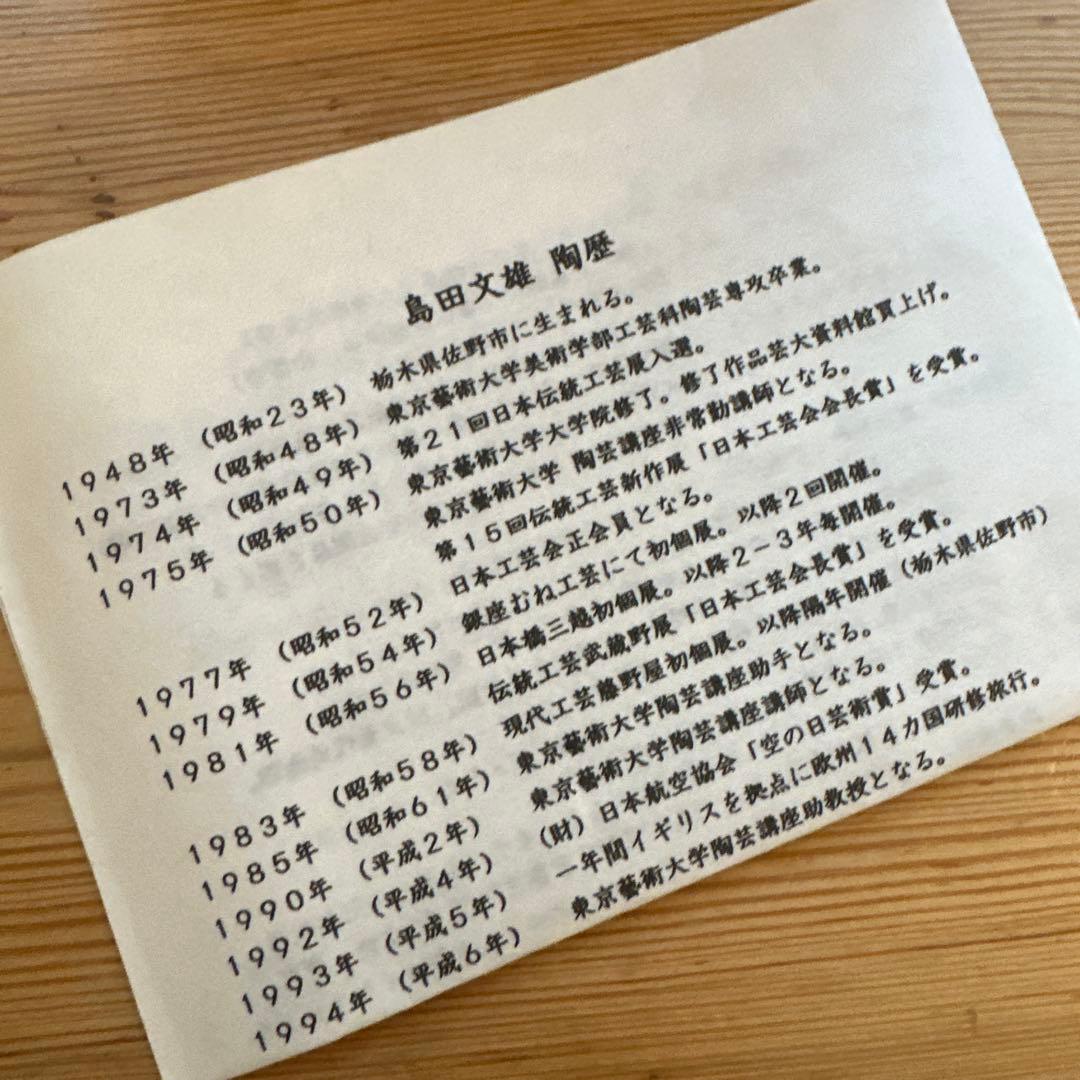 島田文雄 陶歴
1948年 （昭和23年） 栃木県佐野市に生まれる。
1973年 （昭和48年） 東京藝術大学美術学部工芸科陶芸専攻卒業。
1974年 （昭和49年） 第21回日本伝統工芸展入選。
1975年 （昭和50年） 東京藝術大学大学院修了。修了作品芸大資料館買上げ。
東京藝術大学 陶芸講座非常勤講師となる。
第15回伝統工芸新作展「日本工芸会会長賞」を受賞。
1977年 （昭和52年） 日本工芸会正会員となる。
1979年 （昭和54年） 銀座むね工芸にて初個展。以降2回開催。
1981年 （昭和56年） 日本橋三越初個展。以降2－3年毎開催。
伝統工芸武蔵野展「日本工芸会長賞」を受賞。
1983年 （昭和58年） 現代工芸藤野屋初個展。以降隔年開催（栃木県佐野市）
1985年 （昭和61年） 東京藝術大学陶芸講座助手となる。
1990年 （平成2年） 東京藝術大学陶芸講座講師となる。
1992年 （平成4年） （財）日本航空協会「空の日芸術賞」受賞。
1993年 （平成5年） 一年間イギリスを拠点に欧州14カ国研修旅行。
1994年 （平成6年） 東京藝術大学陶芸講座助教授となる。